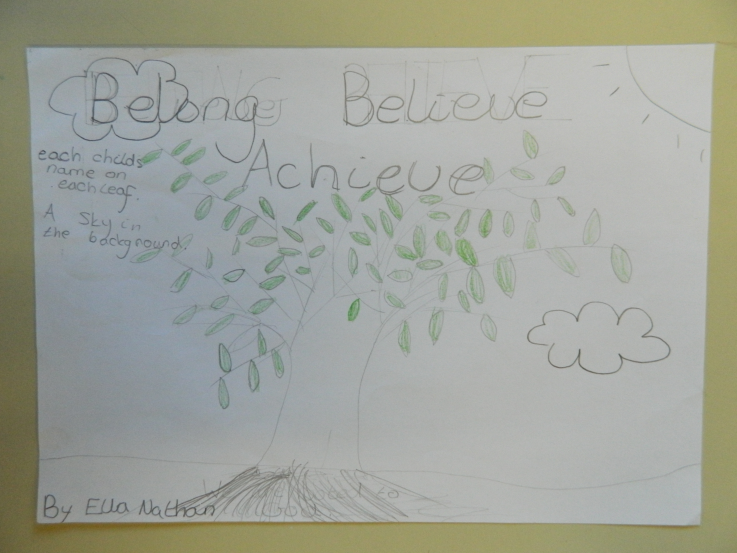 Belong Believe
Achieve
each childs
name on
each leaf.
A Sky in
the background.
By Ella Nathan